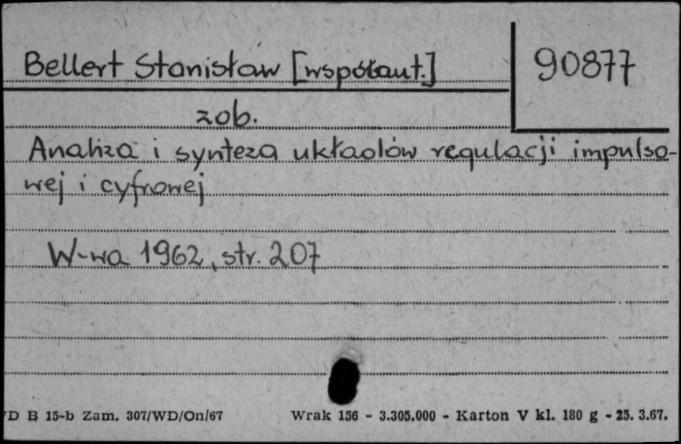 Bellert Stanisław [współaut.]
90877
zob.
Analiza i synteza układów regulacji impulso-
wej i cyfrowej
W-wa 1962, str. 207
D B 15-b Zam. 307/WD/On/67 Wrak 156 - 3.305.000 - Karton V kl. 180 g - 25. 3.67.